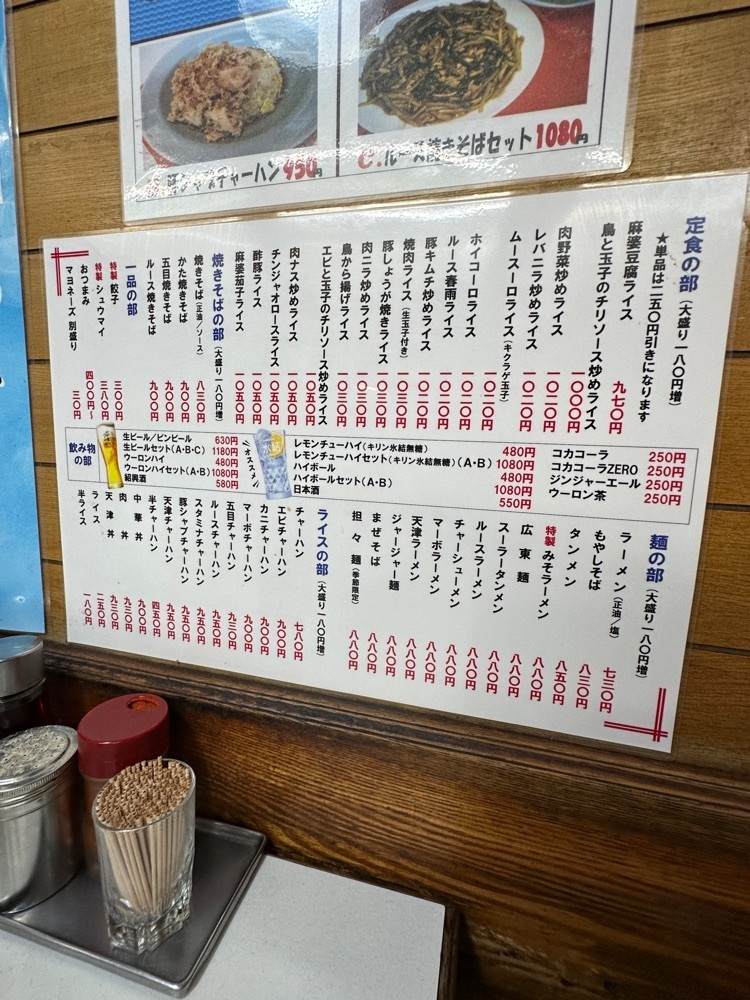 シャブチャーハン 950円
C. ルース焼きそばセット1080円
定食の部 (大盛り一八〇円増)
★単品は二五〇円引きになります
麻婆豆腐ライス 九七〇円
鳥と玉子のチリソース炒めライス 一〇〇〇円
肉野菜炒めライス 一〇二〇円
レバニラ炒めライス 一〇二〇円
ムースーロライス(キクラゲ玉子) 一〇二〇円
ホイコーロライス 一〇二〇円
ルース春雨ライス 一〇二〇円
豚キムチ炒めライス 一〇二〇円
焼肉ライス(生玉子付き) 一〇三〇円
豚しょうが焼きライス 一〇三〇円
肉ニラ炒めライス 一〇三〇円
鳥から揚げライス 一〇三〇円
エビと玉子のチリソース炒めライス 一〇五〇円
肉ナス炒めライス 一〇五〇円
チンジャオロースライス 一〇五〇円
酢豚ライス 一〇五〇円
麻婆茄子ライス 一〇五〇円
焼きそばの部 (大盛り一八〇円増)
焼きそば(正油/ソース) 八三〇円
かた焼きそば 九〇〇円
五目焼きそば 九〇〇円
ルース焼きそば 九〇〇円
一品の部
特製 餃子 三〇〇円
特製 シュウマイ 三八〇円
おつまみ 四〇〇円〜
マヨネーズ 別盛り 三〇円
飲み物の部
生ビール/ビンビール 630円
生ビールセット(A・B・C) 1180円
ウーロンハイ 480円
ウーロンハイセット(A・B) 1080円
紹興酒 580円
オススメ
氷結
レモンチューハイ(キリン氷結無糖) 480円
レモンチューハイセット(キリン氷結無糖)(A・B) 1080円
ハイボール 480円
ハイボールセット(A・B) 1080円
日本酒 550円
コカコーラ 250円
コカコーラZERO 250円
ジンジャーエール 250円
ウーロン茶 250円
麺の部 (大盛り一八〇円増)
ラーメン(正油/塩) 七三〇円
もやしそば 八三〇円
タンメン 八五〇円
特製 みそラーメン 八八〇円
広東麺 八八〇円
スーラータンメン 八八〇円
ルースラーメン 八八〇円
チャーシューメン 八八〇円
マーボラーメン 八八〇円
天津ラーメン 八八〇円
ジャージャー麺 八八〇円
まぜそば 八八〇円
担々麺(季節限定) 八八〇円
ライスの部 (大盛り一八〇円増)
チャーハン 七八〇円
エビチャーハン 九〇〇円
カニチャーハン 九〇〇円
マーボチャーハン 九〇〇円
五目チャーハン 九三〇円
ルースチャーハン 九五〇円
スタミナチャーハン 九五〇円
豚シャブチャーハン 九五〇円
天津チャーハン 九五〇円
半チャーハン 四五〇円
中華丼 九〇〇円
肉丼 九三〇円
天津丼 九三〇円
ライス 二五〇円
半ライス 一八〇円